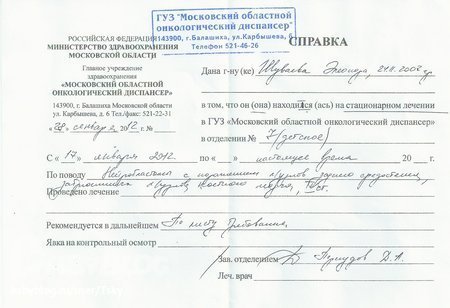 ГУЗ "Московский областной
онкологический диспансер"
143900, г.Балашиха, ул.Карбышева, 6
Телефон 521-46-26
РОССИЙСКАЯ ФЕДЕРАЦИЯ
МИНИСТЕРСТВО ЗДРАВООХРАНЕНИЯ
МОСКОВСКОЙ ОБЛАСТИ
Главное учреждение
здравоохранения
«МОСКОВСКИЙ ОБЛАСТНОЙ
ОНКОЛОГИЧЕСКИЙ ДИСПАНСЕР»
143900, г. Балашиха Московской области
ул. Карбышева, д. 6 Тел./факс: 521-22-31
«28» января 2012 г. №
СПРАВКА
Дана г-ну (ке)
в том, что он (она) находится (ась) на стационарном лечении
в ГУЗ «Московский областной онкологический диспансер»
в отделении № 7 (детское)
С « 17 » января 2012 по « » настоящее время 20 г.
По поводу Нейробластома с поражением заднего средостения,
костного мозга,
Проведено лечение
Рекомендуется в дальнейшем По месту требования.
Явка на контрольный осмотр
Зав. отделением Д. А.
Леч. врач